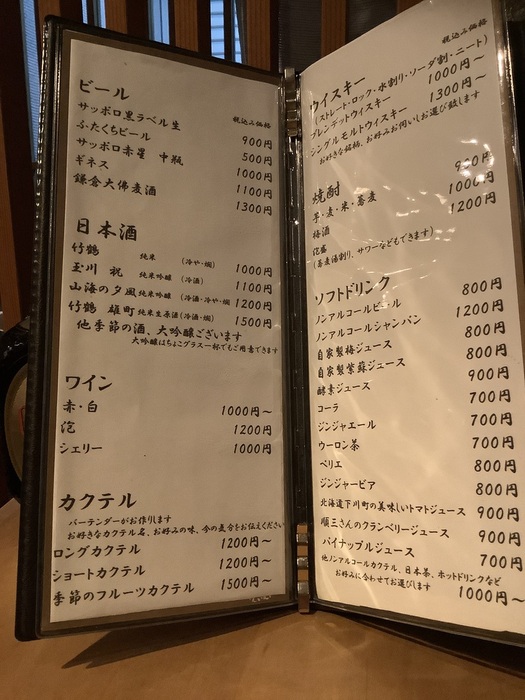 ビール
税込み価格
サッポロ黒ラベル生 900円
ふたくちビール 500円
サッポロ赤星 中瓶 1000円
ギネス 1100円
鎌倉大佛麦酒 1300円
日本酒
竹鶴 純米 (冷や・燗) 1000円
玉川 祝 純米吟醸 (冷酒) 1100円
山海の夕風 純米吟醸 (冷酒・冷や・燗) 1200円
竹鶴 雄町 純米生原酒(冷酒・燗) 1500円
他季節の酒、大吟醸ございます
大吟醸はちょこグラス一杯でもご用意できます
ワイン
赤・白 1000円〜
泡 1200円
シェリー 1000円
カクテル
バーテンダーがお作ります
お好きなカクテル名、お好みの味、今の気分をお伝えください
ロングカクテル 1200円〜
ショートカクテル 1200円〜
季節のフルーツカクテル 1500円〜
税込み価格
ウイスキー
(ストレート・ロック・水割り・ソーダ割・ニート)
ブレンデットウイスキー 1000円〜
シングルモルトウイスキー 1300円〜
お好きな銘柄、お好みお伺いしお選び致します
焼酎
芋・麦・米・蕎麦 900円
梅酒 1000円
泡盛 1200円
(蕎麦湯割り、サワーなどもできます)
ソフトドリンク
ノンアルコールビール 800円
ノンアルコールシャンパン 1200円
自家製梅ジュース 800円
自家製紫蘇ジュース 800円
酵素ジュース 900円
コーラ 700円
ジンジャエール 700円
ウーロン茶 700円
ペリエ 800円
ジンジャービア 800円
北海道下川町の美味しいトマトジュース 900円
順三さんのクランベリージュース 900円
パイナップルジュース 700円
他ノンアルコールカクテル、日本茶、ホットドリンクなど
お好みに合わせてお選びます 1000円〜